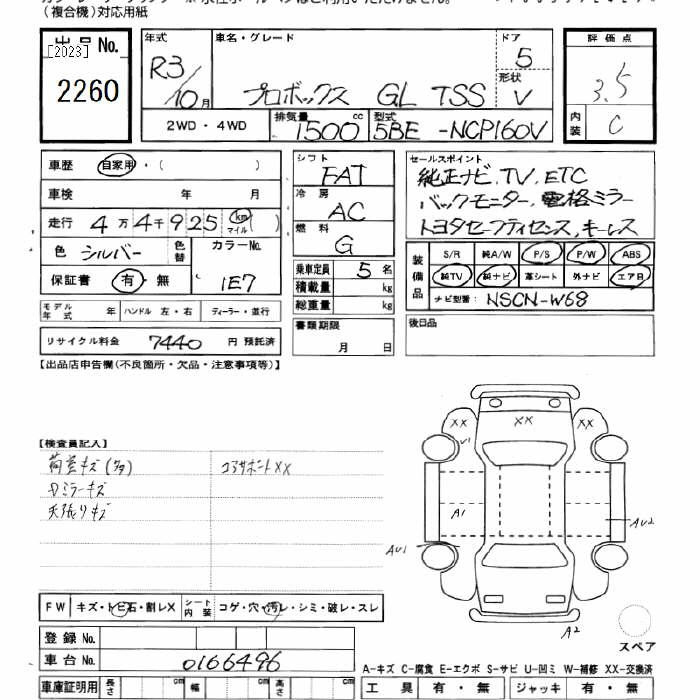 （複合機）対応用紙
出品No.
[2023]
2260
年式
R3/10月
車名・グレード
プロボックス GL TSS
ドア
5
形状
V
評価点
3.5
内装
C
2WD・4WD
排気量
1500cc
型式
5BE -NCP160V
車歴 自家用・( )
車検 年 月
走行 4万4千925 km マイル
色 シルバー
色替
カラーNo.
1E7
保証書 有・無
モデル年式 年
ハンドル 左・右
ディーラー・並行
リサイクル料金 7440 円 預託済
シフト
FAT
冷房
AC
燃料
G
乗車定員 5名
積載量 kg
総重量 kg
書類期限
月 日
セールスポイント
純正ナビ, TV, ETC
バックモニター, 電格ミラー
トヨタセーフティセンス, キーレス
装備品
S/R 純A/W P/S P/W ABS
純TV 純ナビ 革シート 外ナビ エアB
ナビ型番： NSCN-W68
後日品
【出品店申告欄(不良箇所・欠品・注意事項等)】
【検査員記入】
荷室キズ(多) コアサポートXX
Dミラーキズ
天張りキズ
XX XX XX
V1
A1
AU2
AU1
A2
スペア
FW キズ・トビ石・割レX
シート内装 コゲ・穴・汚レ・シミ・破レ・スレ
登録No.
車台No. 0166496
車庫証明用 長さ cm 幅 cm 高さ cm
A-キズ C-腐食 E-エクボ S-サビ U-凹ミ W-補修 XX-交換済
工具 有・無 ジャッキ 有・無